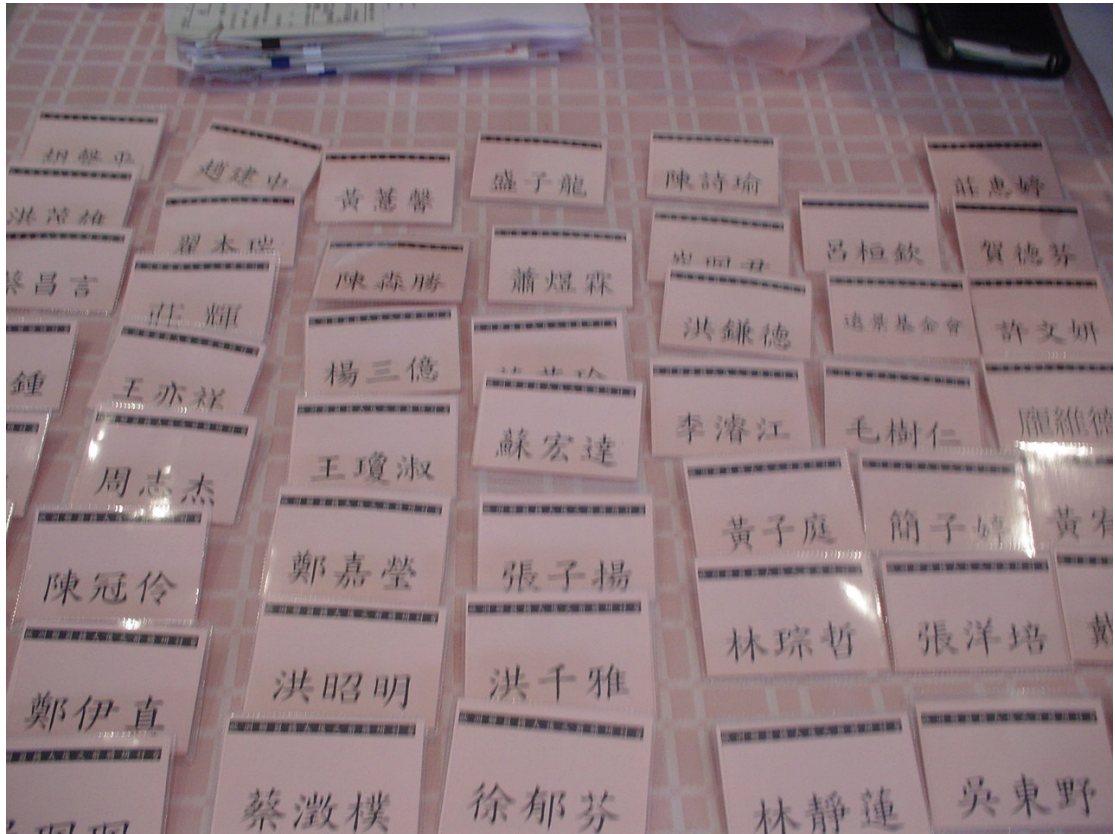 趙建中
黃薏馨
盛子龍
陳詩瑜
莊惠婷
洪茂雄
翟本瑞
呂桓欽
賀德芬
蔡昌言
陳淼勝
蕭煜霖
莊輝
洪鎌德
遠景基金會
許文妍
鍾
王亦祥
楊三億
蘇宏達
李濬江
毛樹仁
龐維德
周志杰
王瓊淑
黃子庭
簡子婷
黃宥
陳冠伶
鄭嘉瑩
張子揚
林琮哲
張洋培
戴
鄭伊直
洪昭明
洪千雅
蔡澂樸
徐郁芬
林靜蓮
吳東野